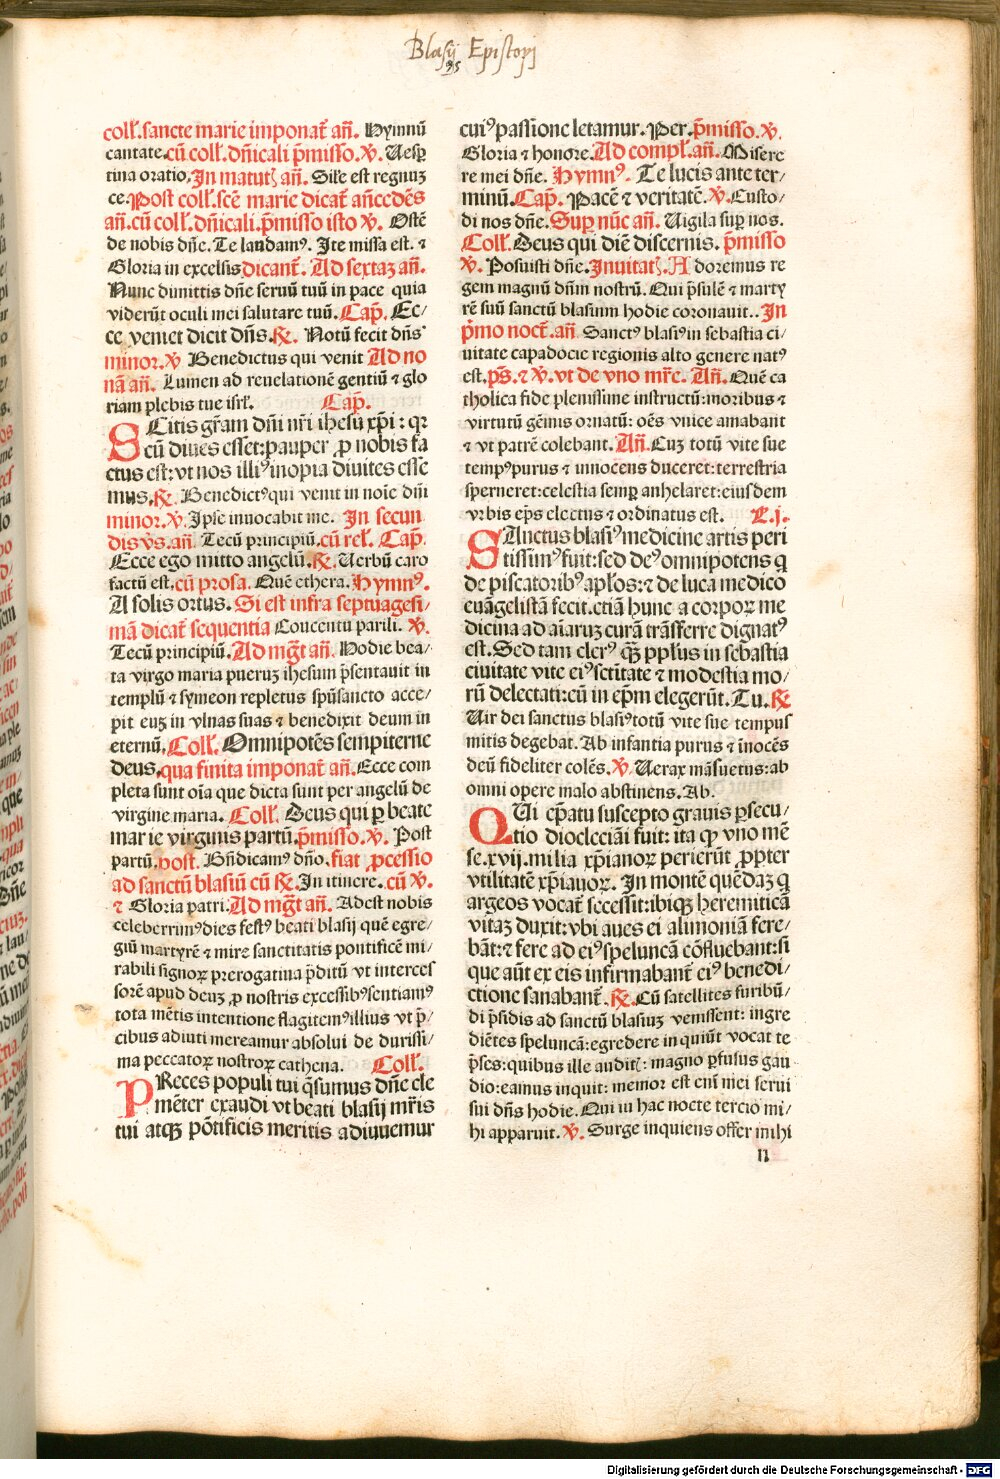 Blasij Episcopi
95
coll̄.sancte marie imponat̄ an̄. Hymnū
cantate.cū coll̄.dn̄icali p̄misso.℣. Uesp̱
tina oratio,In matut̄ an̄. Sil̄e est regnuꝫ
ce.Post coll̄.sc̄e marie dicat̄ an̄cedēs
an̄.cū coll̄.dn̄icali.p̄misso isto ℣. Ostē
de nobis dn̄e. Te laudamꝰ. Ite missa est. ⁊
Gloria in excelsis dicant̄. Ad sextaꝫ an̄.
Nunc dimittis dn̄e seruū tuū in pace quia
viderūt oculi mei salutare tuū.Cap̄. Ec/
ce veniet dicit dn̄s.℟. Notū fecit dn̄s
minor.℣ Benedictus qui venit Ad no
nā an̄. Lumen ad reuelationē gentiū ⁊ glo
riam plebis tue isrl̄. Cap̄.
SCitis gr̄am dn̄i nr̄i ihesū xp̄i : qꝛ
cū diues esset:pauper ꝓ nobis fa
ctus est:vt nos illiꝰ inopia diuites esse
mus,℟. Benedictꝰ qui venit in noīe dn̄i
minor.℣. Ipse inuocabit me. In secun
dis v̄s.an̄. Tecū principiū,cū rel̄. Cap̄.
Ecce ego mitto angelū.℟. Uerbū caro
factū est,cū prosa. Quē ethera.Hymnꝰ.
A solis ortus. Si est infra septuagesi/
mā dicat̄ sequentia Concentu parili. ℣.
Tecū principiū.Ad mḡt an̄. Hodie bea/
ta virgo maria pueruꝫ ihesum p̄sentauit in
templū ⁊ symeon repletus spūsancto acce/
pit euꝫ in vlnas suas ⁊ benedixit deum in
eternū,Coll̄. Omnipotēs sempiterne
deus,qua finita imponat̄ an̄.Ecce com
pleta sunt oīa que dicta sunt per angelū de
virgine maria. Coll̄. Deus qui ꝑ beate
marie virginis partū.p̄misso.℣. Post
partū.post. Bn̄dicamꝰ dn̄o.fiat ꝓcessio
ad sanctū blasiū cū ℟.In itinere.cū ℣.
⁊ Gloria patri.Ad mḡt an̄. Adest nobis
celeberrimꝰ dies festꝰ beati blasij quē egre/
giū martyrē ⁊ mire sanctitatis pontificē mi/
rabili signoꝝ prerogatiua p̄ditū vt interces
sorē apud deuꝫ ꝓ nostris excessibꝰ sentiamꝰ
tota mētis intentione flagitemꝰ illius vt p̄/
cibus adiuti mereamur absolui de durissi/
ma peccatoꝝ nostroꝝ cathena. Coll̄.
PReces populi tui q̄sumus dn̄e cle
mēter exaudi vt beati blasij mr̄is
tui atqꝫ pōtificis meritis adiuuemur
cuiꝰ passione letamur.Per.p̄misso.℣.
Gloria ⁊ honore.Ad compl̄.an̄.Misere
re mei dn̄e. Hymnꝰ. Te lucis ante ter/
minū.Cap̄. Pacē ⁊ veritatē.℣.Custo/
di nos dn̄e.Suꝑ nūc an̄. Uigila suꝑ nos.
Coll̄.Deus qui diē discernis. p̄misso
℣. Posuisti dn̄e.Inuitat̄.Adoremus re
gem magnū dn̄m nostrū. Qui p̄sulē ⁊ marty
rē suū sanctū blasium hodie coronauit..In
p̄mo noct̄.an̄. Sanctꝰ blasiꝰ in sebastia ci/
uitate capadocie regionis alto genere natꝰ
est.ps̄.⁊ ℣.vt de vno mr̄e. An̄. Quē ca
tholica fide plenissime instructū:moribus ⁊
virtutū gēmis ornatū: oēs vnice amabant
⁊ vt patrē colebant.An̄. Cuꝫ totū vite sue
tempꝰ purus ⁊ innocens duceret:terrestria
sperneret:celestia semꝑ anhelaret:eiusdem
vrbis ep̄s electus ⁊ ordinatus est. L.j.
SAnctus blasiꝰ medicine artis peri
tissimꝰ fuit:sed deꝰ omnipotens q̄
de piscatoribꝰ apl̄os:⁊ de luca medico
euāgelistā fecit.etiā hunc a corpoꝝ me
dicina ad aīaruꝫ curā trāsferre dignatꝰ
est. Sed tam clerꝰ qꝫ ppl̄us in sebastia
ciuitate vite eiꝰ sctītate ⁊ modestia mo/
rū delectati:cū in ep̄m elegerūt.Tu.℟
Uir dei sanctus blasiꝰ totū vite sue tempus
mitis degebat. Ab infantia purus ⁊ īnocēs
deū fideliter colēs.℣. Uerax māsuetus:ab
omni opere malo abstinens. Ab.
QUi ep̄atu suscepto grauis ꝑsecu/
tio diocleciāi fuit: ita qꝫ vno mē
se.xvij.milia xp̄ianoꝝ perierūt ꝓpter
vtilitatē xp̄ianoꝝ. In montē quēdaꝫ q̄
argeos vocat̄ secessit:ibiqꝫ heremiticā
vitaꝫ duxit:vbi aues ei alimoniā fere/
bāt:⁊ fere ad eiꝰ speluncā cōfluebant:si
que aūt ex eis infirmabant̄ eiꝰ benedi/
ctione sanabant̄.℟.Cū satellites furibū/
di p̄sidis ad sanctū blasiuꝫ venissent: ingre
diētes speluncā:egredere in quiūt vocat te
p̄ses:quibus ille audit̄: magno ꝑfusus gau
dio:eamus inquit: memor est eni mei serui
sui dn̄s hodie. Qui in hac nocte tercio mi/
hi apparuit.℣. Surge inquiens offer mihi
n
Digitalisierung gefördert durch die Deutsche Forschungsgemeinschaft - DFG